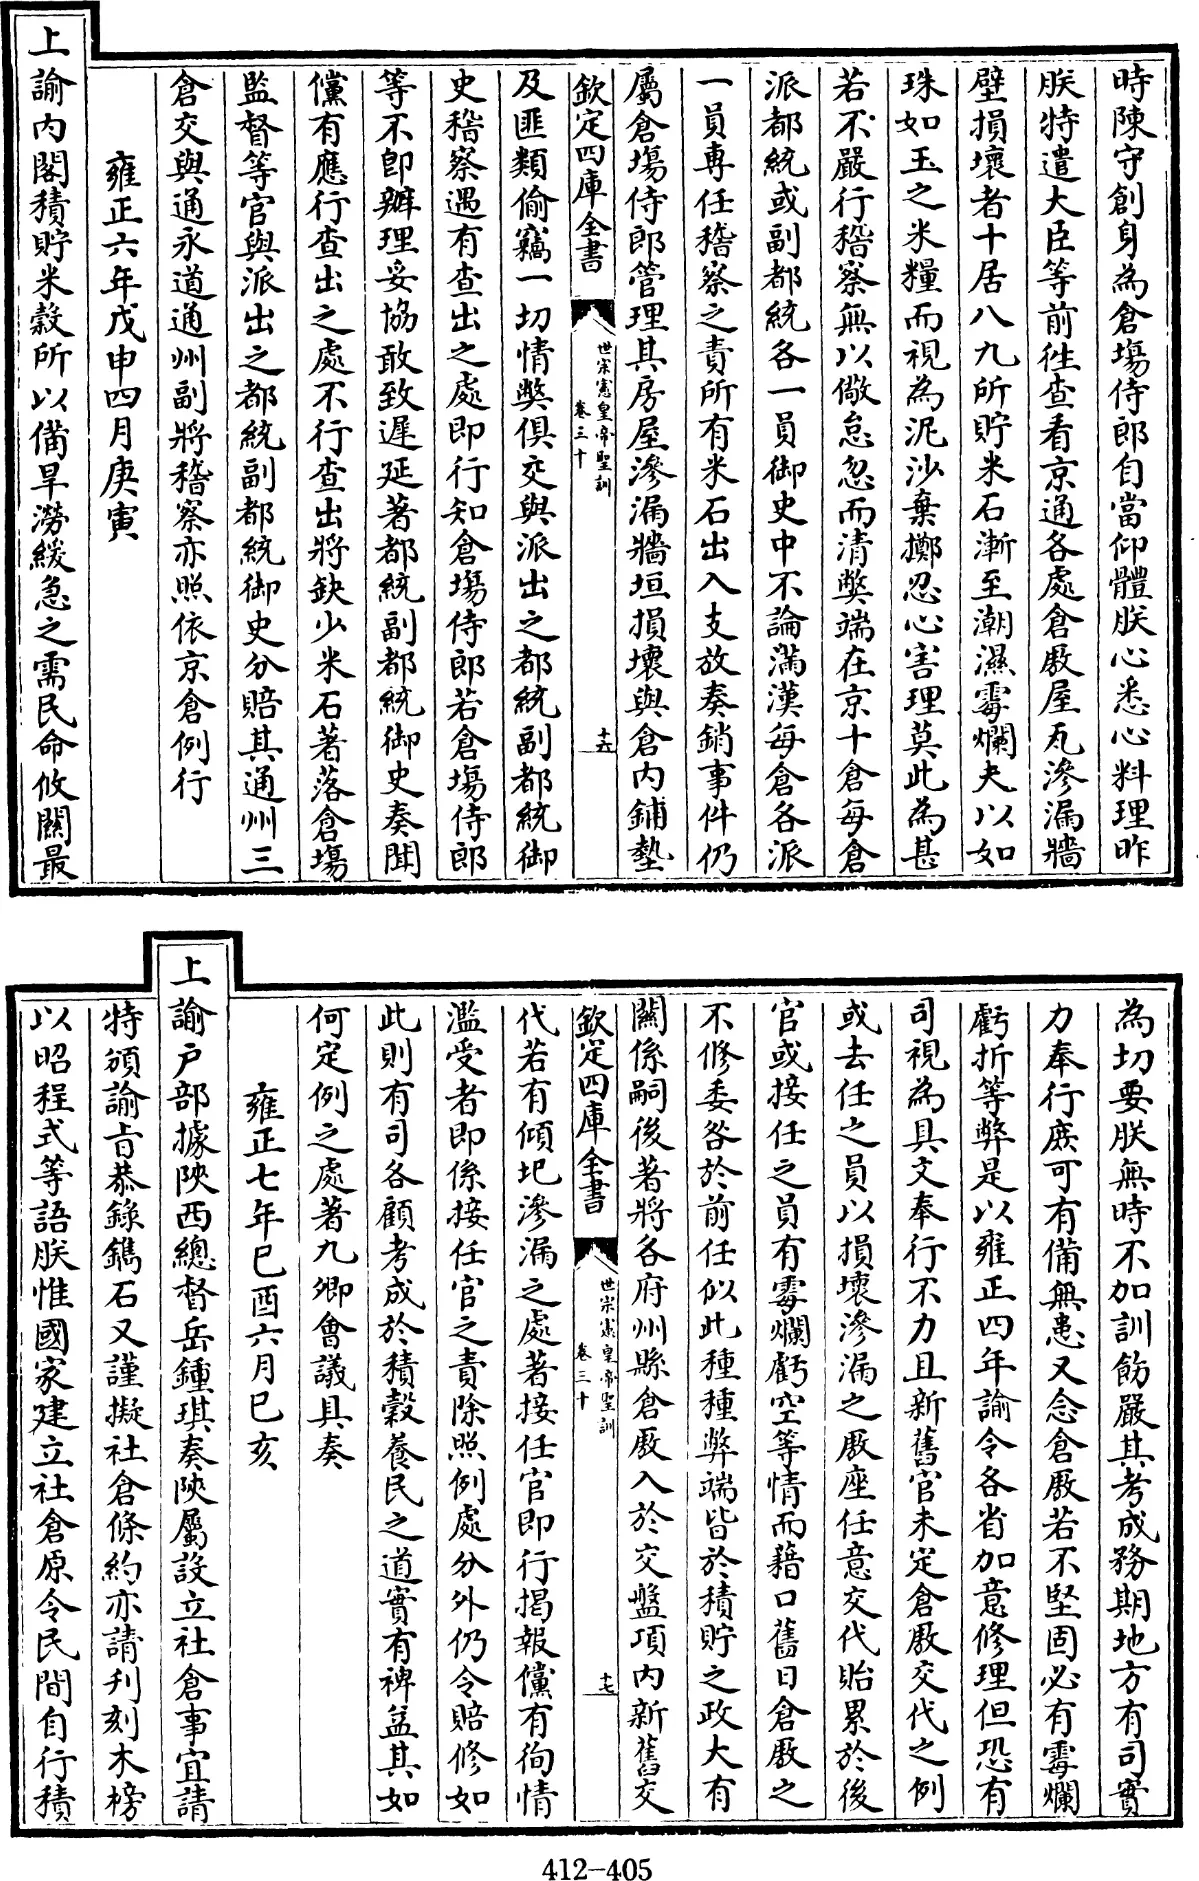 時陳守創身為倉場侍郎自當仰體朕心悉心料理昨
朕特遣大臣等前徃查看京通各處倉厫屋瓦滲漏牆
壁損壞者十居八九所貯米石漸至潮濕霉爛夫以如
珠如玉之米糧而視為泥沙棄擲忍心害理莫此為甚
若不嚴行稽察無以儆怠忽而清獘端在京十倉每倉
派都統或副都統各一員御史中不論滿漢每倉各派
一員專任稽察之責所有米石出入支放奏銷事件仍
屬倉場侍郎管理其房屋滲漏牆垣損壞與倉內鋪墊
欽定四庫全書
世宗憲皇帝聖訓
卷三十
十六
及匪類偷竊一切情獘俱交與派出之都統副都統御
史稽察遇有查出之處即行知倉場侍郎若倉場侍郎
等不卽辦理妥協敢致遲延著都統副都統御史奏聞
儻有應行查出之處不行查出將缺少米石著落倉場
監督等官與派出之都統副都統御史分賠其通州三
倉交與通永道通州副將稽察亦照依京倉例行
雍正六年戊申四月庚寅
上諭內閣積貯米穀所以備旱澇緩急之需民命攸關最
為切要朕無時不加訓飭嚴其考成務期地方有司實
力奉行庶可有備無患又念倉厫若不堅固必有霉爛
虧折等弊是以雍正四年諭令各省加意修理但恐有
司視為具文奉行不力且新舊官未定倉厫交代之例
或去任之員以損壞滲漏之厫座任意交代貽累於後
官或接任之員有霉爛虧空等情而藉口舊日倉厫之
不修委咎於前任似此種種弊端皆於積貯之政大有
關係嗣後著將各府州縣倉厫入於交盤項內新舊交
欽定四庫全書
世宗憲皇帝聖訓
卷三十
十七
代若有傾圮滲漏之處著接任官即行揭報儻有徇情
濫受者即係接任官之責除照例處分外仍令賠修如
此則有司各顧考成於積穀養民之道實有裨益其如
何定例之處著九卿會議具奏
雍正七年己酉六月己亥
上諭户部據陝西總督岳鍾琪奏陝屬設立社倉事宜請
特頒諭旨恭錄鐫石又謹擬社倉條約亦請刋刻木榜
以昭程式等語朕惟國家建立社倉原令民間自行積
412-405